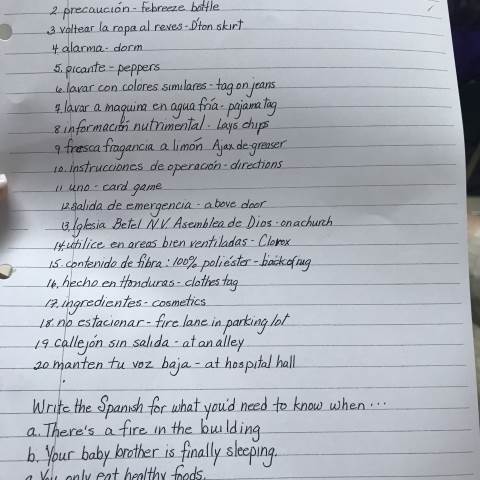 2. precaución - febreeze bottle
3. voltear la ropa al reves - D'ton skirt
4 alarma - dorm
5. picante - peppers
6. lavar con colores similares - tag on jeans
7. lavar a maquina en agua fría - pajama tag
8 información nutrimental - Lays chips
9 fresca fragancia a limón Ajax degreaser
10. instrucciones de operación - directions
11 uno - card game
12 salida de emergencia - above door
13. Iglesia Betel N.V. Asemblea de Dios - on a church
14. utilice en areas bien ventiladas - Clorox
15. contenido de fibra: 100% poliéster - back of rug
16. hecho en Honduras - clothes tag
17. ingredientes - cosmetics
18. no estacionar - fire lane in parking lot
19 callejón sin salida - at an alley
20 manten tu voz baja - at hospital hall
Write the Spanish for what you'd need to know when...
a. There's a fire in the building
b. Your baby brother is finally sleeping.
You only eat healthy foods.